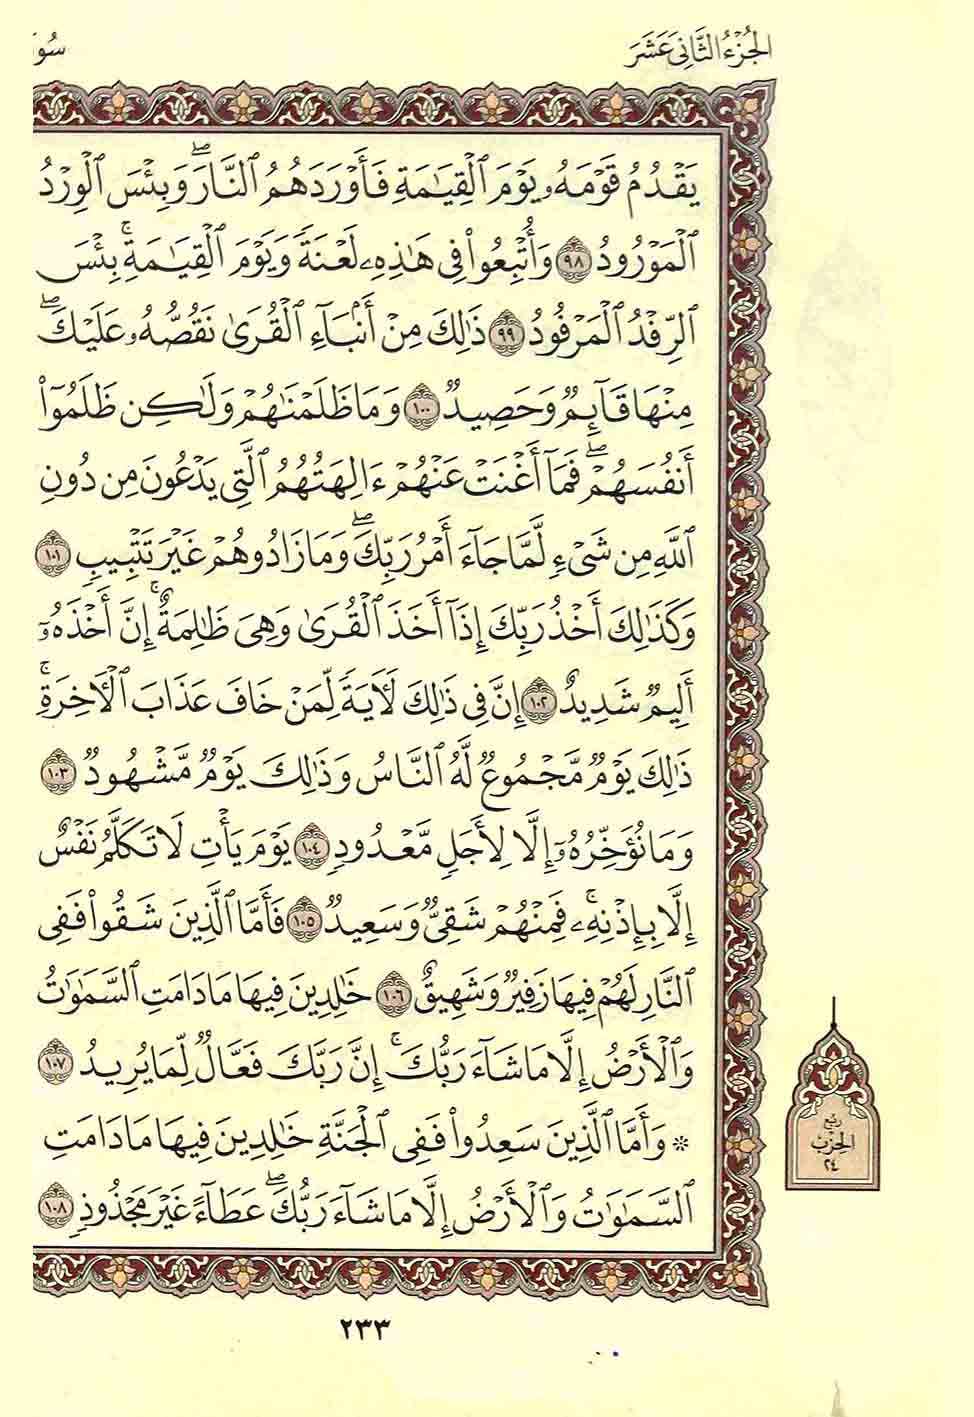 الجُزْءُ الثَّانِيَ عَشَرَ
سُو
يَقْدُمُ قَوْمَهُۥ يَوْمَ ٱلْقِيَـٰمَةِ فَأَوْرَدَهُمُ ٱلنَّارَۖ وَبِئْسَ ٱلْوِرْدُ
ٱلْمَوْرُودُ ٩٨ وَأُتْبِعُوا۟ فِى هَـٰذِهِۦ لَعْنَةً وَيَوْمَ ٱلْقِيَـٰمَةِۚ بِئْسَ
ٱلرِّفْدُ ٱلْمَرْفُودُ ٩٩ ذَٰلِكَ مِنْ أَنۢبَآءِ ٱلْقُرَىٰ نَقُصُّهُۥ عَلَيْكَۖ
مِنْهَا قَآئِمٌ وَحَصِيدٌ ١٠٠ وَمَا ظَلَمْنَـٰهُمْ وَلَـٰكِن ظَلَمُوٓا۟
أَنفُسَهُمْۖ فَمَآ أَغْنَتْ عَنْهُمْ ءَالِهَتُهُمُ ٱلَّتِى يَدْعُونَ مِن دُونِ
ٱللَّهِ مِن شَىْءٍ لَّمَّا جَآءَ أَمْرُ رَبِّكَۖ وَمَا زَادُوهُمْ غَيْرَ تَتْبِيبٍ ١٠١
وَكَذَٰلِكَ أَخْذُ رَبِّكَ إِذَآ أَخَذَ ٱلْقُرَىٰ وَهِىَ ظَـٰلِمَةٌۚ إِنَّ أَخْذَهُۥٓ
أَلِيمٌ شَدِيدٌ ١٠٢ إِنَّ فِى ذَٰلِكَ لَـَٔايَةً لِّمَنْ خَافَ عَذَابَ ٱلْـَٔاخِرَةِۚ
ذَٰلِكَ يَوْمٌ مَّجْمُوعٌ لَّهُ ٱلنَّاسُ وَذَٰلِكَ يَوْمٌ مَّشْهُودٌ ١٠٣
وَمَا نُؤَخِّرُهُۥٓ إِلَّا لِأَجَلٍ مَّعْدُودٍ ١٠٤ يَوْمَ يَأْتِ لَا تَكَلَّمُ نَفْسٌ
إِلَّا بِإِذْنِهِۦۚ فَمِنْهُمْ شَقِىٌّ وَسَعِيدٌ ١٠٥ فَأَمَّا ٱلَّذِينَ شَقُوا۟ فَفِى
ٱلنَّارِ لَهُمْ فِيهَا زَفِيرٌ وَشَهِيقٌ ١٠٦ خَـٰلِدِينَ فِيهَا مَا دَامَتِ ٱلسَّمَـٰوَٰتُ
وَٱلْأَرْضُ إِلَّا مَا شَآءَ رَبُّكَۚ إِنَّ رَبَّكَ فَعَّالٌ لِّمَا يُرِيدُ ١٠٧
* وَأَمَّا ٱلَّذِينَ سُعِدُوا۟ فَفِى ٱلْجَنَّةِ خَـٰلِدِينَ فِيهَا مَا دَامَتِ
ٱلسَّمَـٰوَٰتُ وَٱلْأَرْضُ إِلَّا مَا شَآءَ رَبُّكَۖ عَطَآءً غَيْرَ مَجْذُوذٍ ١٠٨
رُبْع
الحِزْب
٢٤
٢٣٣